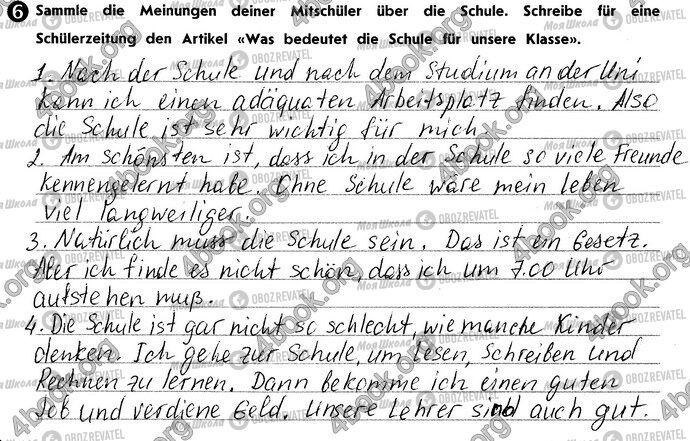 6 Sammle die Meinungen deiner Mitschüler über die Schule. Schreibe für eine
Schülerzeitung den Artikel «Was bedeutet die Schule für unsere Klasse».
1. Nach der Schule und nach dem Studium an der Uni
kann ich einen adäquaten Arbeitsplatz finden. Also
die Schule ist sehr wichtig für mich.
2. Am schönsten ist, dass ich in der Schule so viele Freunde
kennengelernt habe. Ohne Schule wäre mein Leben
viel langweiliger.
3. Natürlich muss die Schule sein. Das ist ein Gesetz.
Aber ich finde es nicht schön, dass ich um 7.00 Uhr
aufstehen muß.
4. Die Schule ist gar nicht so schlecht, wie manche Kinder
denken. Ich gehe zur Schule, um Lesen, Schreiben und
Rechnen zu lernen. Dann bekomme ich einen guten
Job und verdiene Geld. Unsere Lehrer sind auch gut.